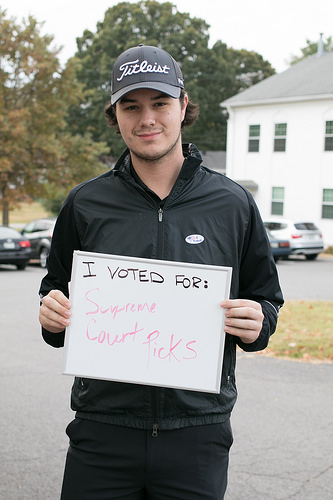 Titleist
I VOTED FOR:
Supreme
Court Picks